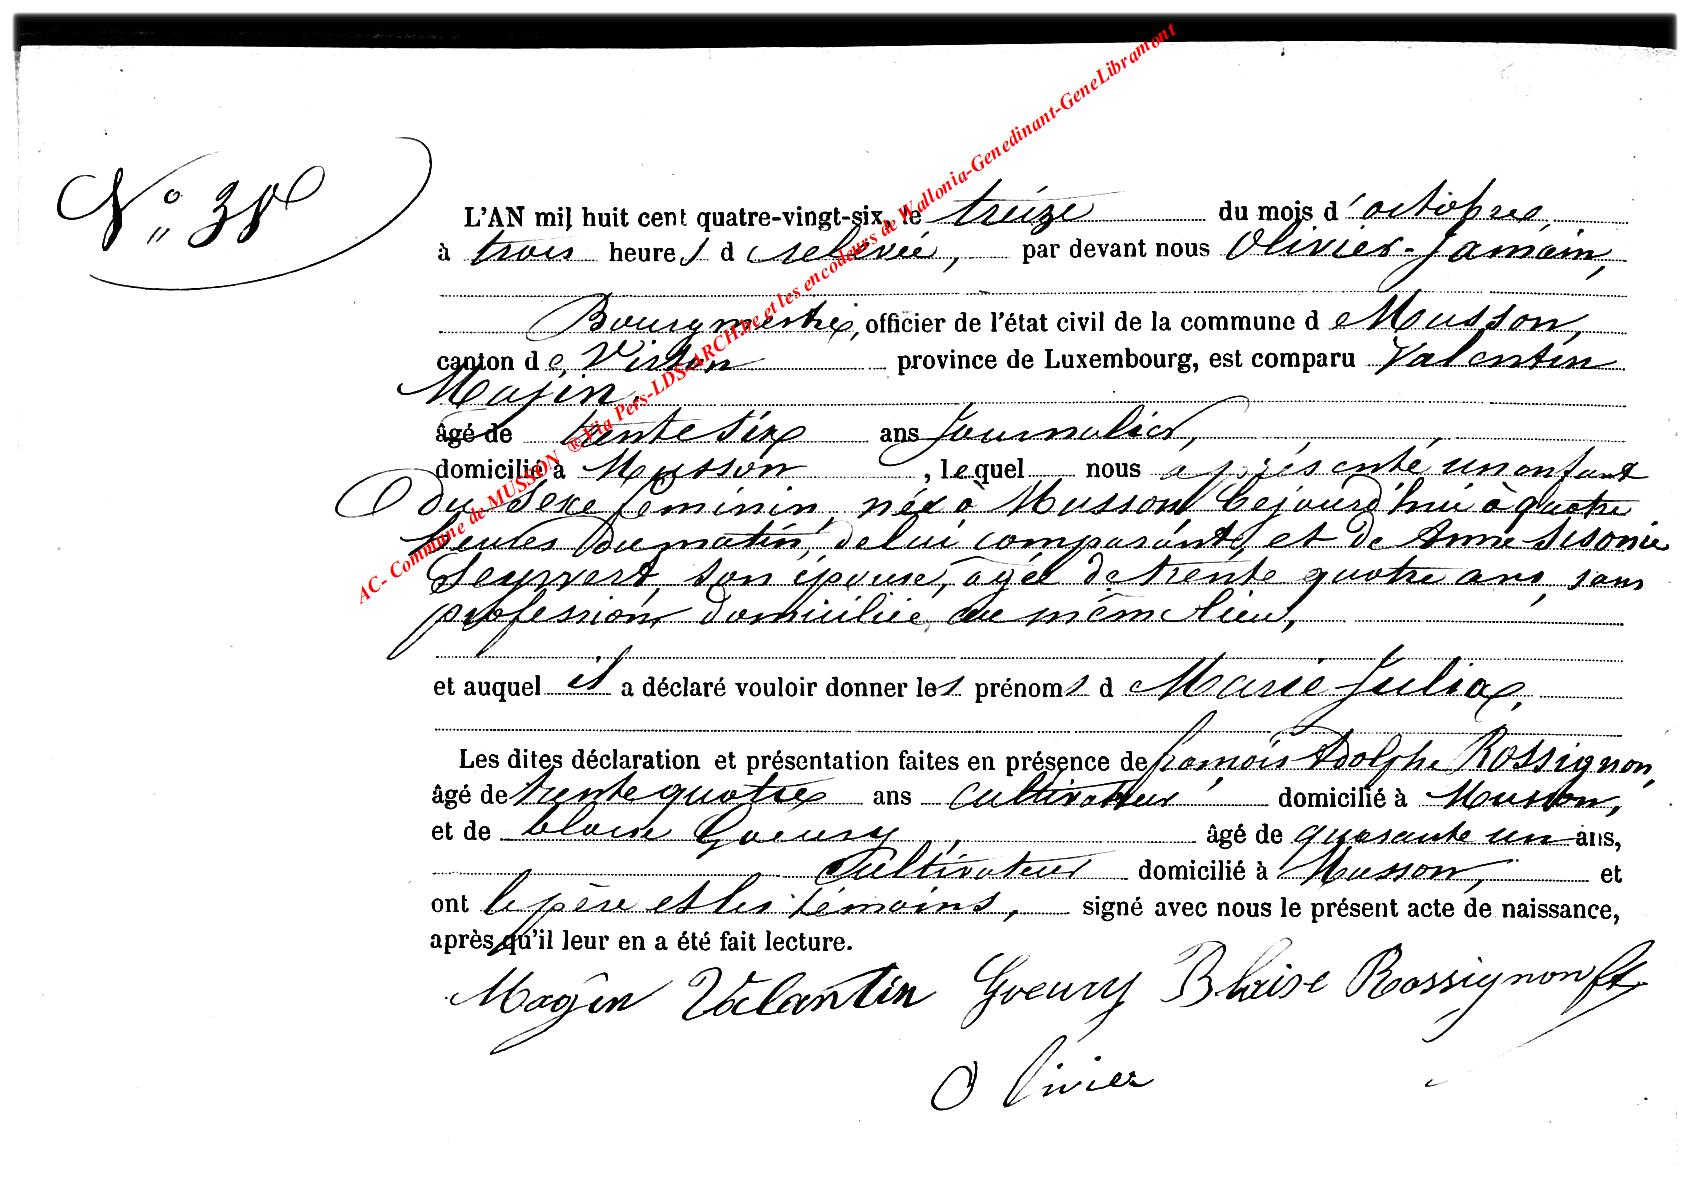 N° 38
L'AN mil huit cent quatre-vingt-six, le treize du mois d'octobre
à trois heures de relevée, par devant nous Olivier-Jamain,
Bourgmestre, officier de l'état civil de la commune de Musson,
canton de Virton province de Luxembourg, est comparu Valentin
Majin,
âgé de trente six ans Journalier,
domicilié à Musson, lequel nous a présenté un enfant
du sexe féminin, née à Musson Cejourd'hui à quatre
heures du matin, de lui comparant, et de Anne Sisonie
Seywert, son épouse, âgée de trente quatre ans, sans
profession, domiciliée au même lieu,
et auquel il a déclaré vouloir donner les prénoms d Marie Julia,
Les dites déclaration et présentation faites en présence de françois Adolphe Rossignon,
âgé de trente quatre ans cultivateur domicilié à Musson,
et de Goeury, âgé de quarante un ans,
Cultivateur domicilié à Musson, et
ont le père et les témoins, signé avec nous le présent acte de naissance,
après qu'il leur en a été fait lecture.
Magin Valantin Goeury Blaise Rossignon
Olivier
AC- Commune de MUSSON ® Via Pers-LDS-ARCH.be et les encodeurs de Wallonia-Genedinant-GeneLibramont